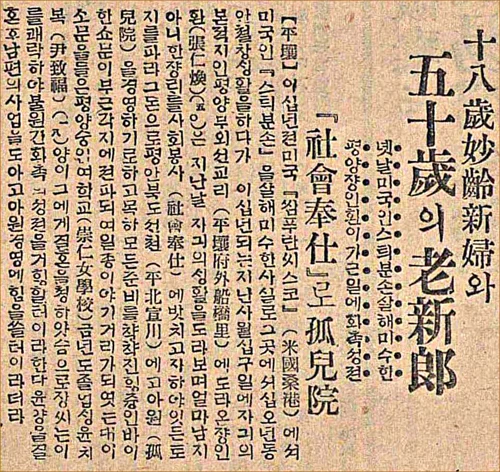 十八歲妙齡新婦와
五十歲의老新郎
옛날미국인스틔분손살해미수한
평양장인환이가근일에화촉성전
『社會奉仕』로孤兒院
【平壤】이십년전미국『쌤푸란씨스코』(米國桑港)에서
미국인『스틔분손』을살해미수한사실로그곳에서십오년동
안텰창성활을하다가이십년되는지난사월십구일에자긔의
본적지인평양부외선교리(平壤府外船橋里)에도라온쟝인
환(張仁煥)은지난날자긔의성활을도라보며얼마남지
아니한쟝리를사회봉사(社會奉仕)에밧치고자하야잇든토
지를파라그돈으로평안북도선쳔(平北宣川)에고아원(孤
兒院)을경영하기로하고목하모든준비를챡챡진힝중인바이
한쇼문이부근각지에전파되여일종이야기거리가되엿는대이
소문을들은평양숭인녀학교(崇仁女學校)금년도졸업성윤치
복(尹致福)양이그에게결호을청하얏슴으로쟝씨는이
를쾌락하야불원간화촉성전을거힝할터이라한다윤양은결
혼후남편의사업을도아고아원경영에힘을쓸터이라더라